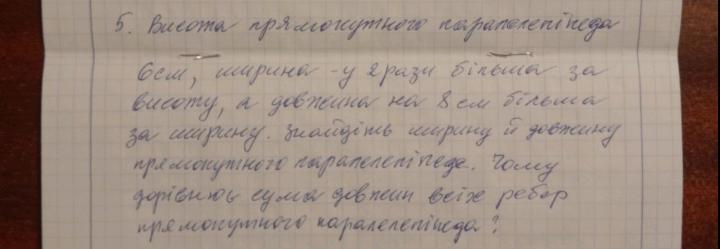 5. Висота прямокутного паралелепіпеда
6см, ширина - у 2 рази більша за
висоту, а довжина на 8 см більша
за ширину. Знайдіть ширину й довжину
прямокутного паралелепіпеда. Чому
дорівнює сума довжин всіх ребер
прямокутного паралелепіпеда?